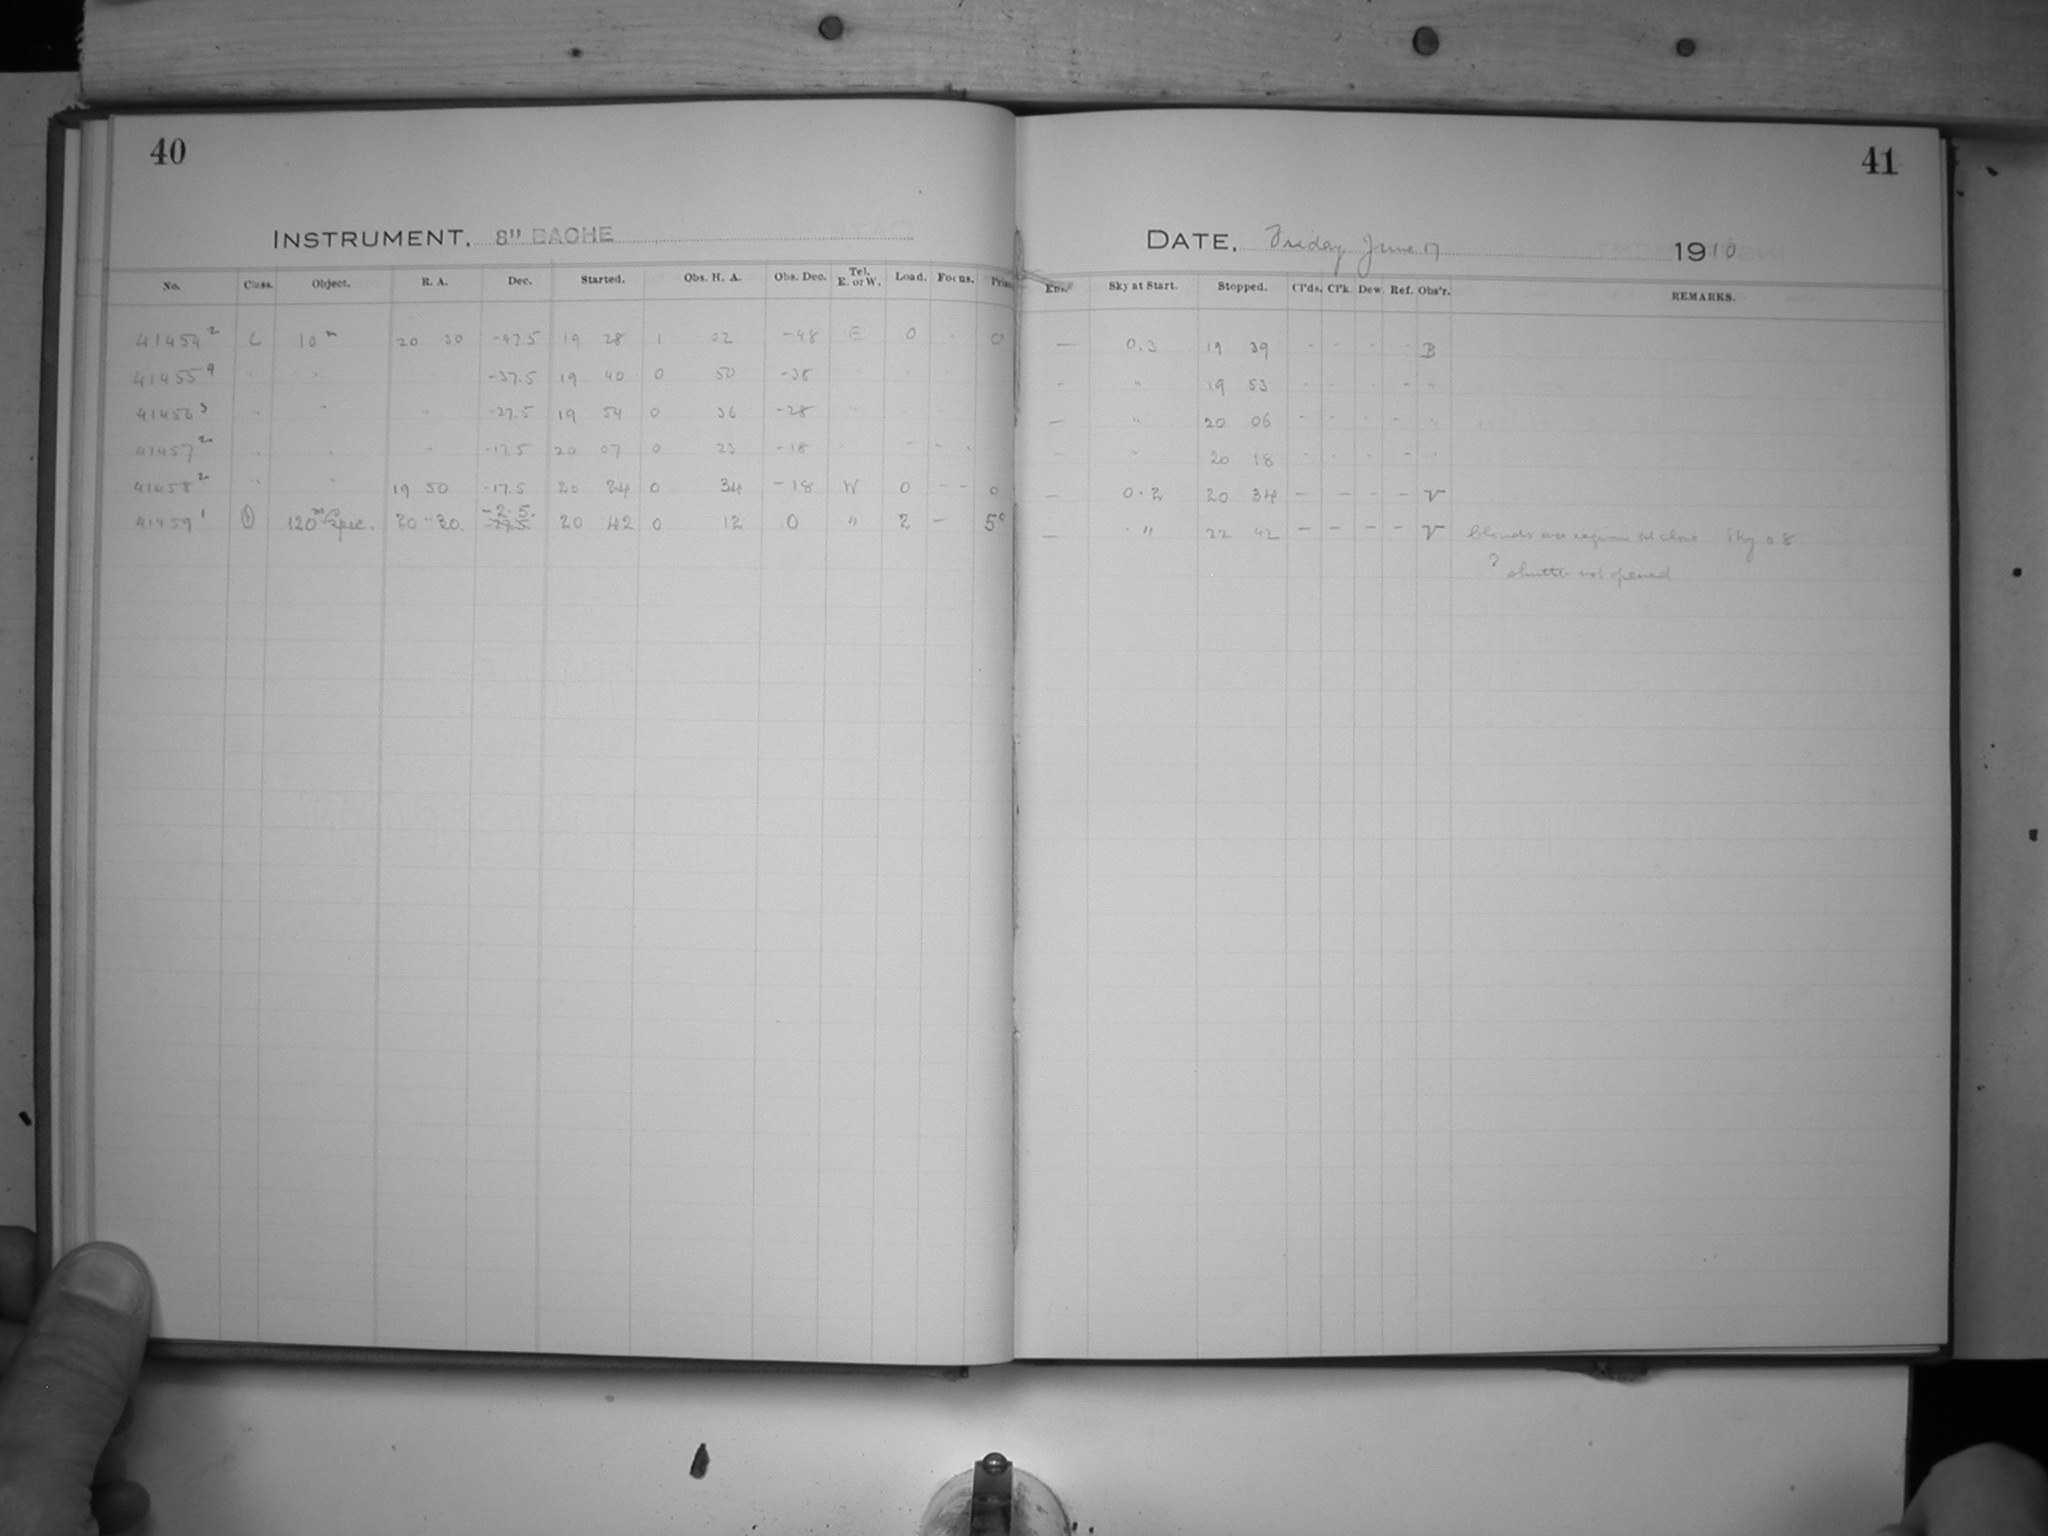 40
INSTRUMENT, 8" BACHE
No. Class. Object. R. A. Dec. Started. Obs. H. A. Obs. Dec. Tel. E. or W. Load. Focus. Prism
41454 2 L 10 m 20 30 -47.5 19 28 1 02 -48 E 0 - 0
41455 4 " " " -37.5 19 40 0 50 -38
41456 3 " " " -27.5 19 54 0 36 -28
41457 2 " " " -17.5 20 07 0 23 -18 - - -
41458 2 " " 19 50 -17.5 20 24 0 34 -18 W 0 - - 0
41459 1 120 m Spec. 20 30. -2.5. -27.5. 20 42 0 12 0 " 2 - 5°
41
DATE, Friday June 17 1910
Sky at Start. Stopped. Cl'ds. Cl'k. Dew. Ref. Obs'r. REMARKS.
— 0.3 19 39 - - - - B
- " 19 53 - - - - "
— " 20 06 - - - - "
- " 20 18 - - - - "
— 0.2 20 34 - - - - V
— " 22 42 - - - - V Clouds over region at close Sky 0.8
? shutter not opened